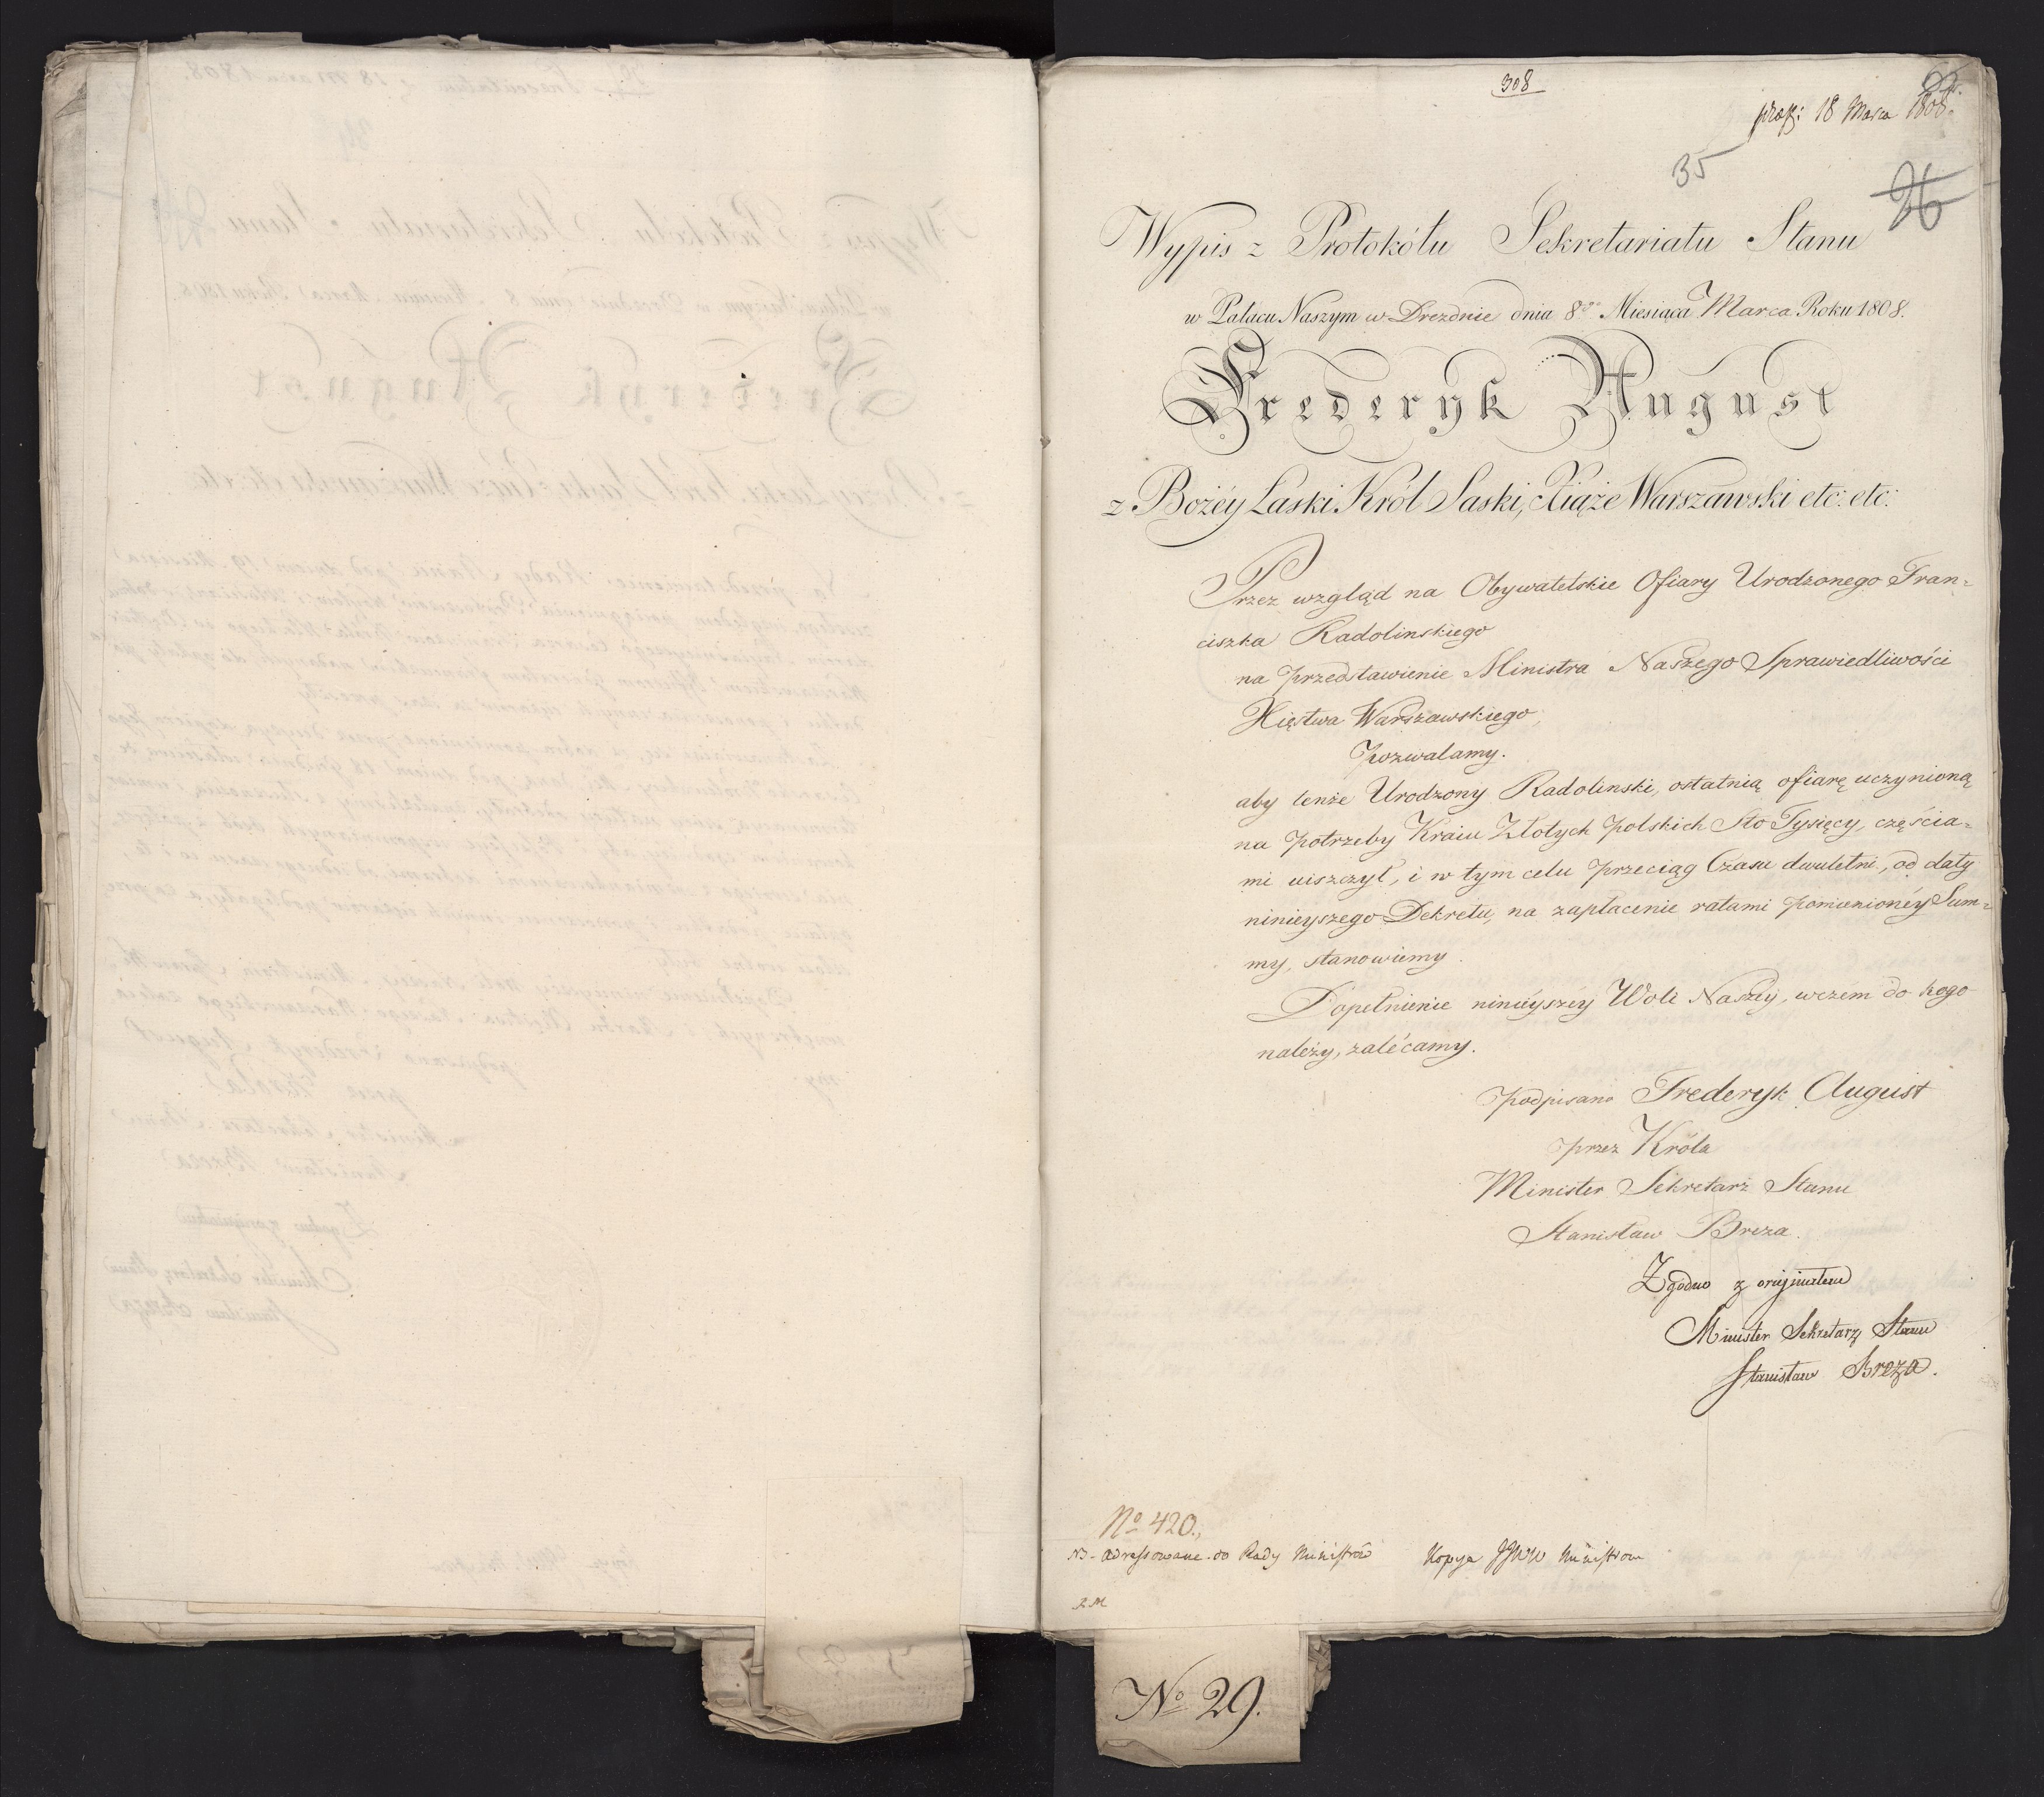 308
18 Marca 1808.
35
26
Wypis z Protokółu Sekretariatu Stanu
w Pałacu Naszym w Dreznie dnia 8go Miesiąca Marca Roku 1808.
Frederyk August
z Bożéy Łaski Król Saski, Xiąże Warszawski etc: etc:
Przez wzgląd na Obywatelskie Ofiary Urodzonego Fran=
ciszka Radolinskiego
na przedstawienie Ministra Naszego Sprawiedliwości
Xięstwa Warszawskiego,
pozwalamy.
aby tenże Urodzony Radolinski, ostatnią ofiarę uczynioną
na potrzeby Kraiu Złotych polskich Sto Tysięcy, częścia=
mi uiszczył, i w tym celu przeciąg Czasu dwuletni, od daty
ninieyszego Dekretu, na zapłacenie ratami pomienionéy Sum=
my, stanowiemy.
Dopełnienie ninieyszéy Woli Naszéy, wczém do kogo
należy, zalécamy.
podpisano Frederyk August
przez Króla
Minister Sekretarz Stanu
Stanisław Breza.
Zgodno z oryginałem
Minister Sekretarz Stanu
Stanisław Breza.
No 420.,
NB. adressowane do Rady Ministrów Kopya JJWW Ministrom
R.M
No 29.